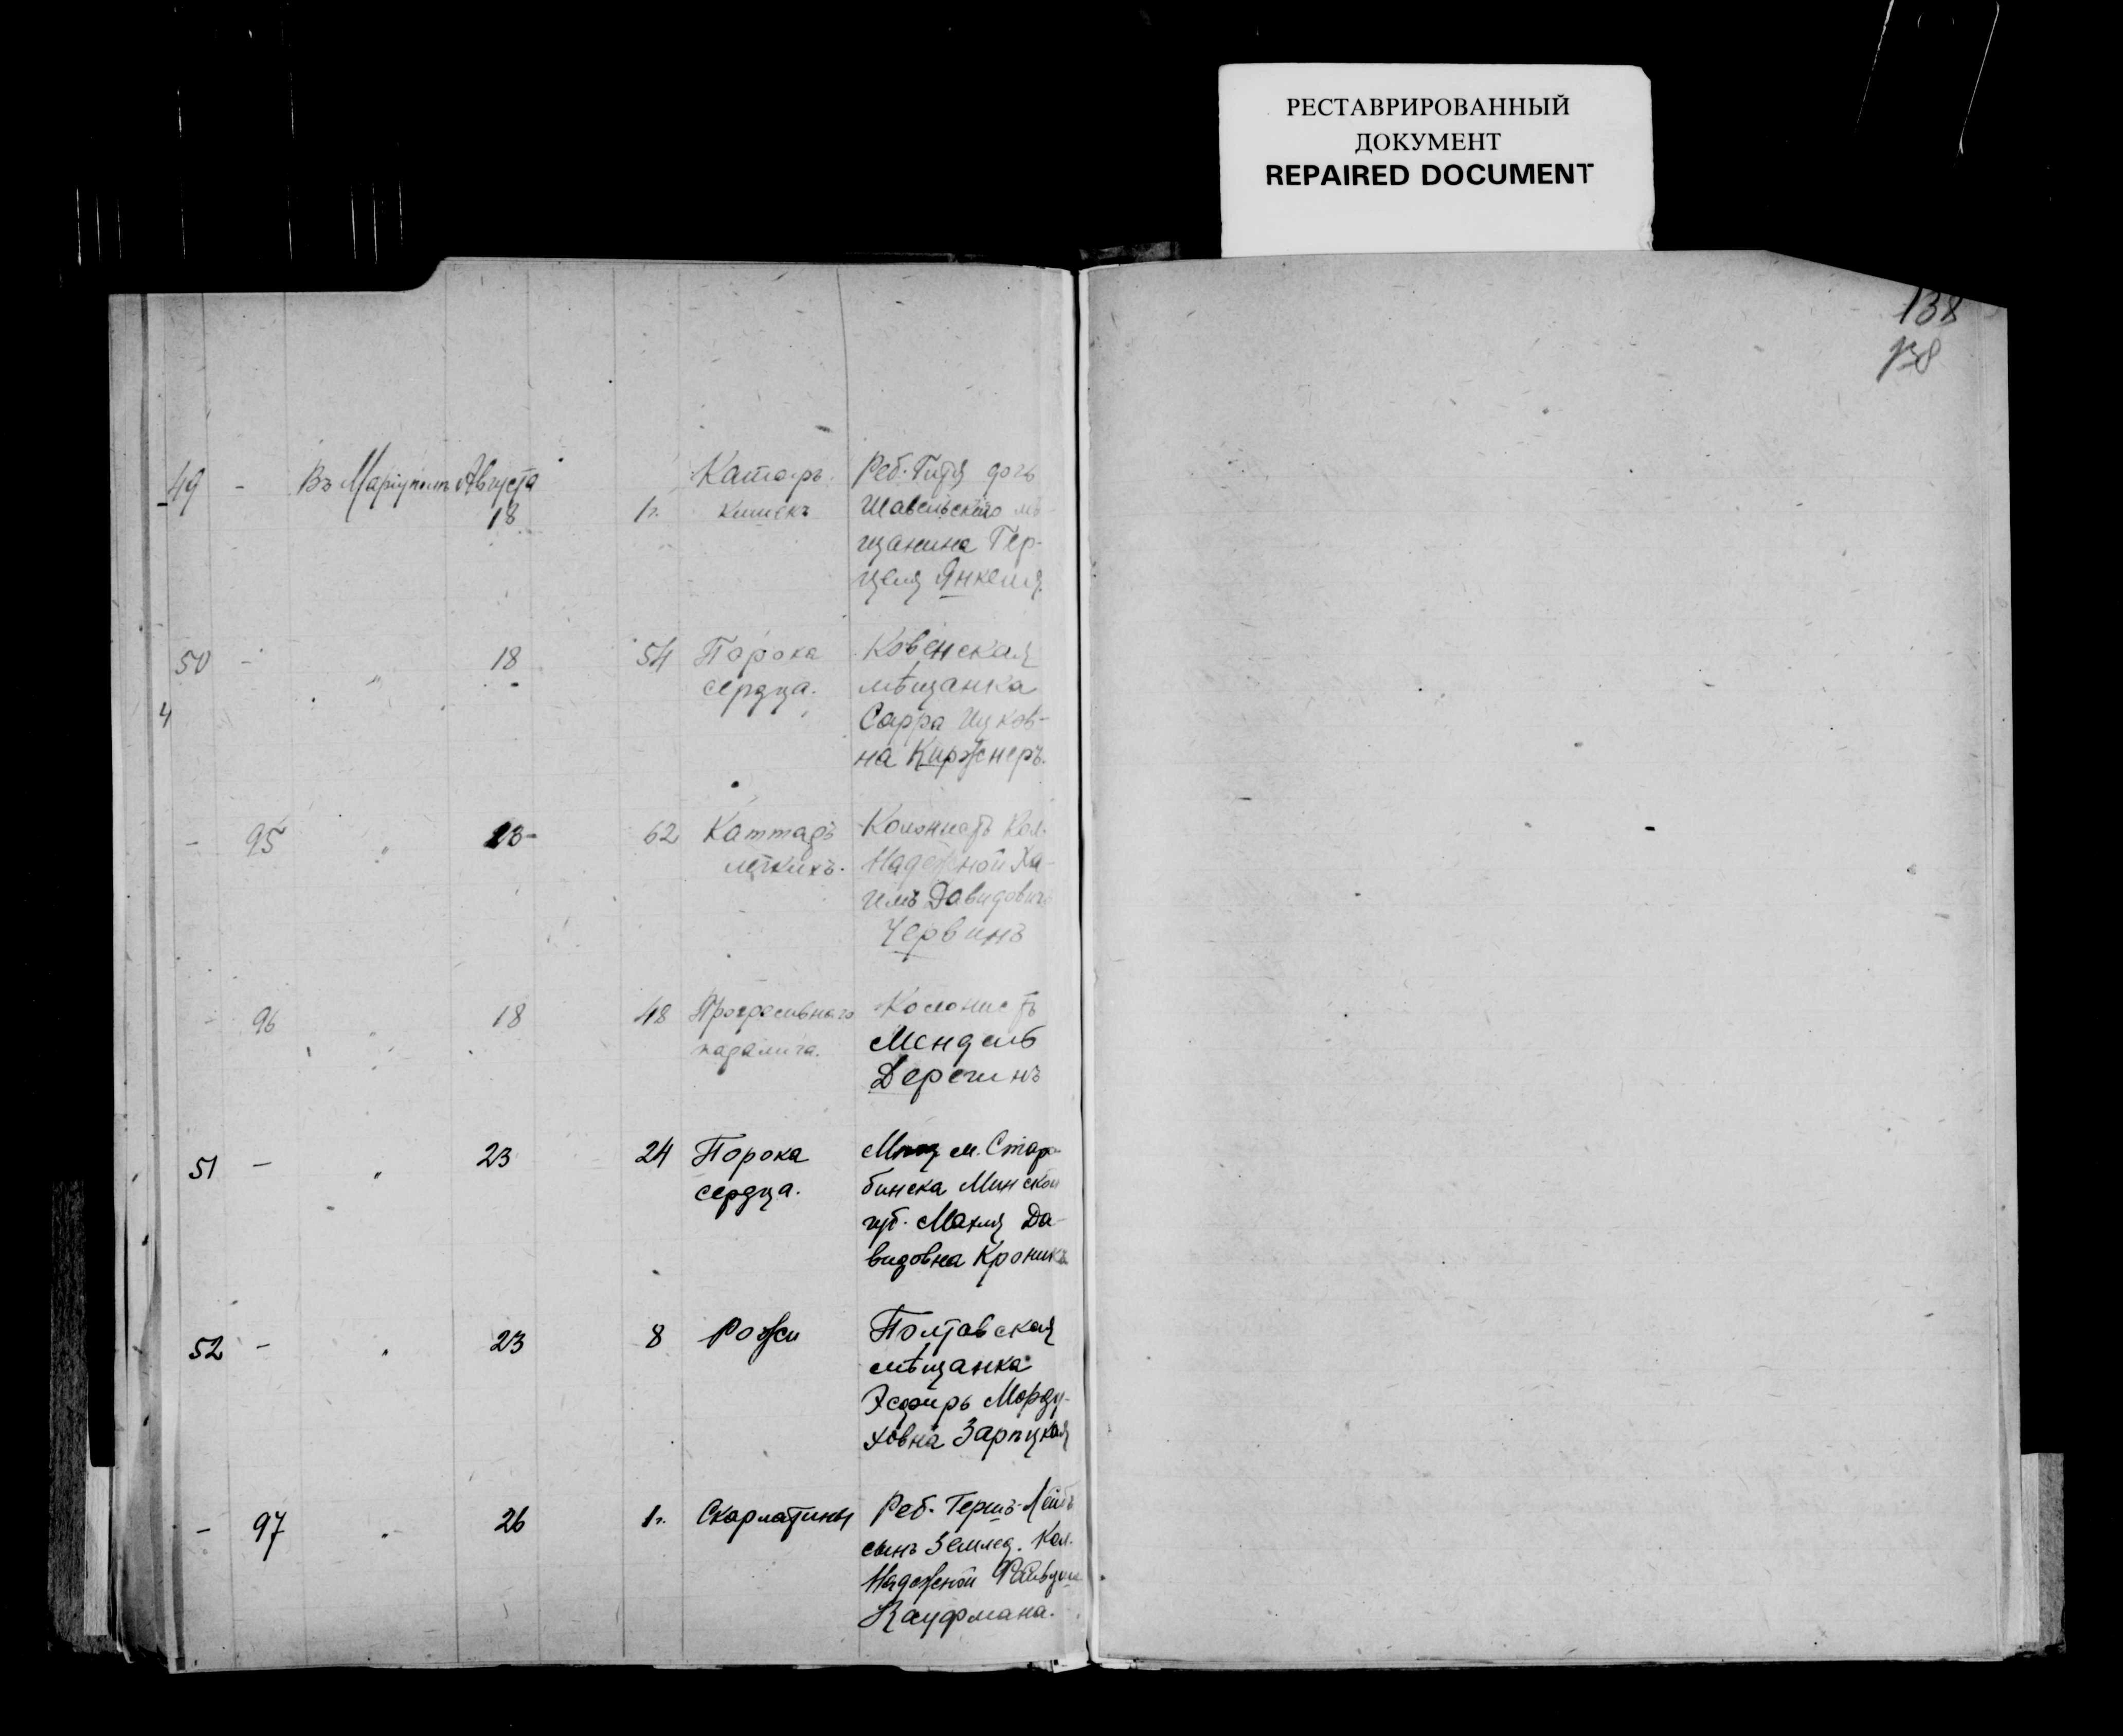 РЕСТАВРИРОВАННЫЙ
ДОКУМЕНТ
REPAIRED DOCUMENT
138
138
49 - Въ Маріуполѣ Августа Катаръ Реб. Гитя дочь
18 1г. кишекъ Шавельскаго мѣ-
щанина Гер-
целя Янкеля
50 - " 18 54 Порока Ковенская
сердца. мѣщанка
4 Сарра Ицков-
на Киржнеръ.
- 95 " 18 62 Каттаръ Колонистъ Кол.
легкихъ. Надежной Ха-
имъ Давидовичъ
Червинъ
- 96 " 18 48 Прогресивнаго Колонистъ
паралича. Мендель
Деречинъ
51 - " 23 24 Порока Мѣщ м. Старо-
сердца. бинска Минской
губ. Махля Да-
видовна Кроникъ
52 - " 23 8 Рожи Полтавская
мѣщанка
Эсфирь Морду-
ховна Зарѣцкая
- 97 " 26 1г. Скарлатины Реб. Гершъ-Лейбъ
сынъ Землед. Кол.
Надежной Файвуша
Кауфмана.